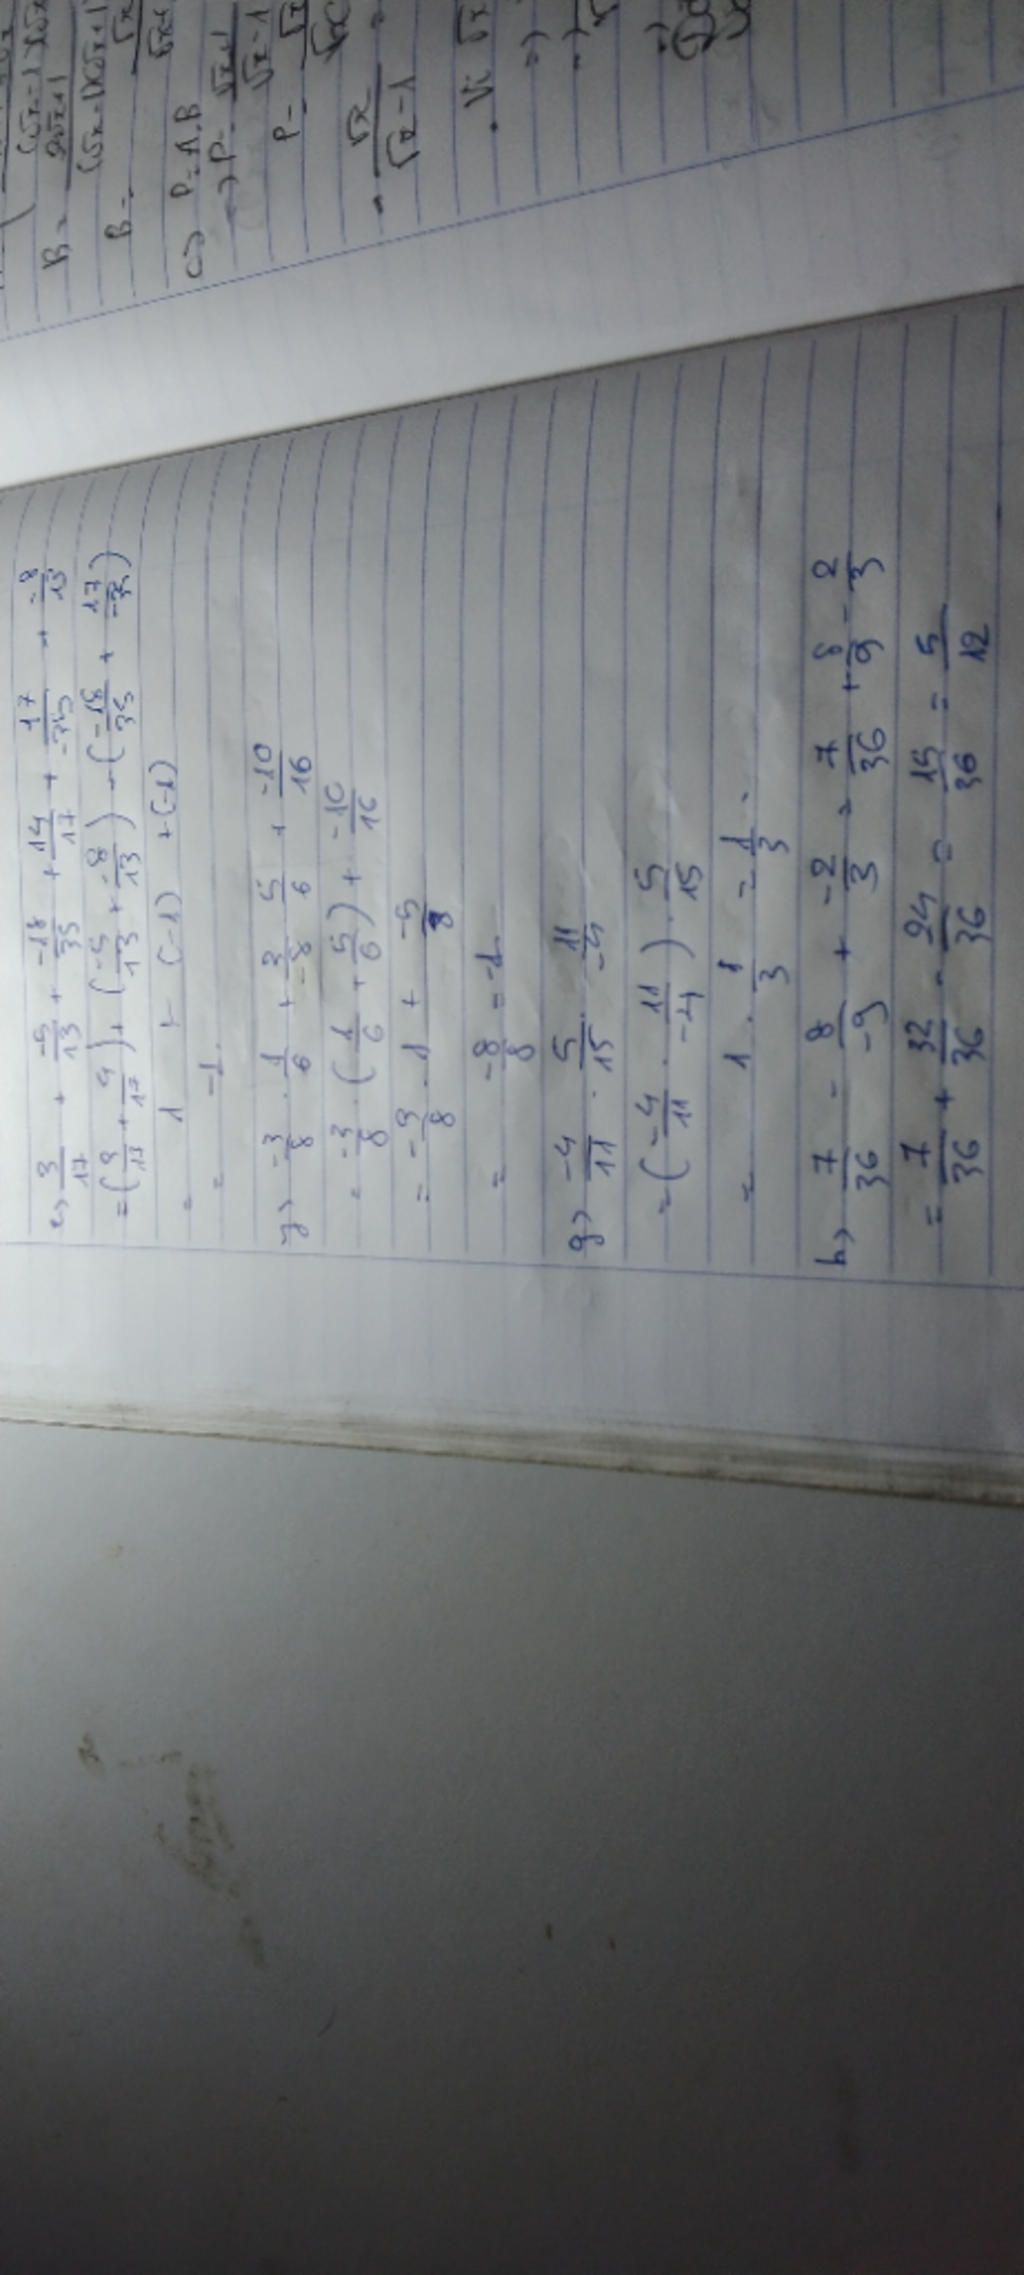 e) 3/17 + -5/13 + -18/35 + 14/17 + 17/-35 + -8/13
= (3/17 + 14/17) + (-5/13 + -8/13) + (-18/35 + 17/-35)
= 1 + (-1) + (-1)
= -1.
f) -3/8 . 1/6 + 3/-8 . 5/6 + -10/16
= -3/8 . (1/6 + 5/6) + -10/16
= -3/8 . 1 + -5/8
= -8/8 = -1
g) -4/11 . 5/15 . 11/-4
= (-4/11 . 11/-4) . 5/15
= 1 . 1/3 = 1/3 .
h) 7/36 - 8/-9 + -2/3 = 7/36 + 8/9 - 2/3
= 7/36 + 32/36 - 24/36 = 15/36 = 5/12
B = 2√x+1
(√x-1)(√x+1)
B =
c) P = A.B
=> P =
√x-1
P =
= √x
√x-1
. Vì √x